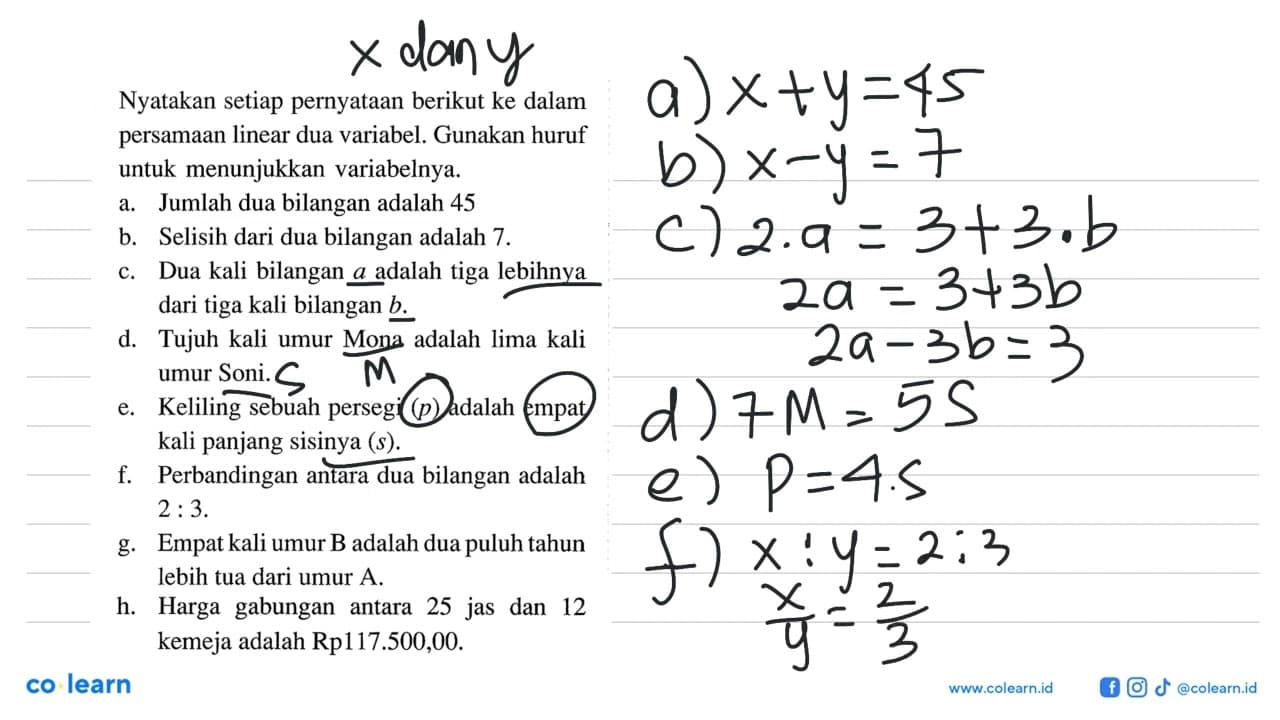 x dan y
Nyatakan setiap pernyataan berikut ke dalam
persamaan linear dua variabel. Gunakan huruf
untuk menunjukkan variabelnya.
a. Jumlah dua bilangan adalah 45
b. Selisih dari dua bilangan adalah 7.
c. Dua kali bilangan a adalah tiga lebihnya
dari tiga kali bilangan b.
d. Tujuh kali umur Mona adalah lima kali
umur Soni. S M
e. Keliling sebuah persegi (p) adalah empat
kali panjang sisinya (s).
f. Perbandingan antara dua bilangan adalah
2 : 3.
g. Empat kali umur B adalah dua puluh tahun
lebih tua dari umur A.
h. Harga gabungan antara 25 jas dan 12
kemeja adalah Rp117.500,00.
a) x + y = 45
b) x - y = 7
c) 2.a = 3 + 3.b
2a = 3 + 3b
2a - 3b = 3
d) 7M = 5S
e) P = 4.S
f) x : y = 2 : 3
x/y = 2/3
co learn
www.colearn.id
@colearn.id